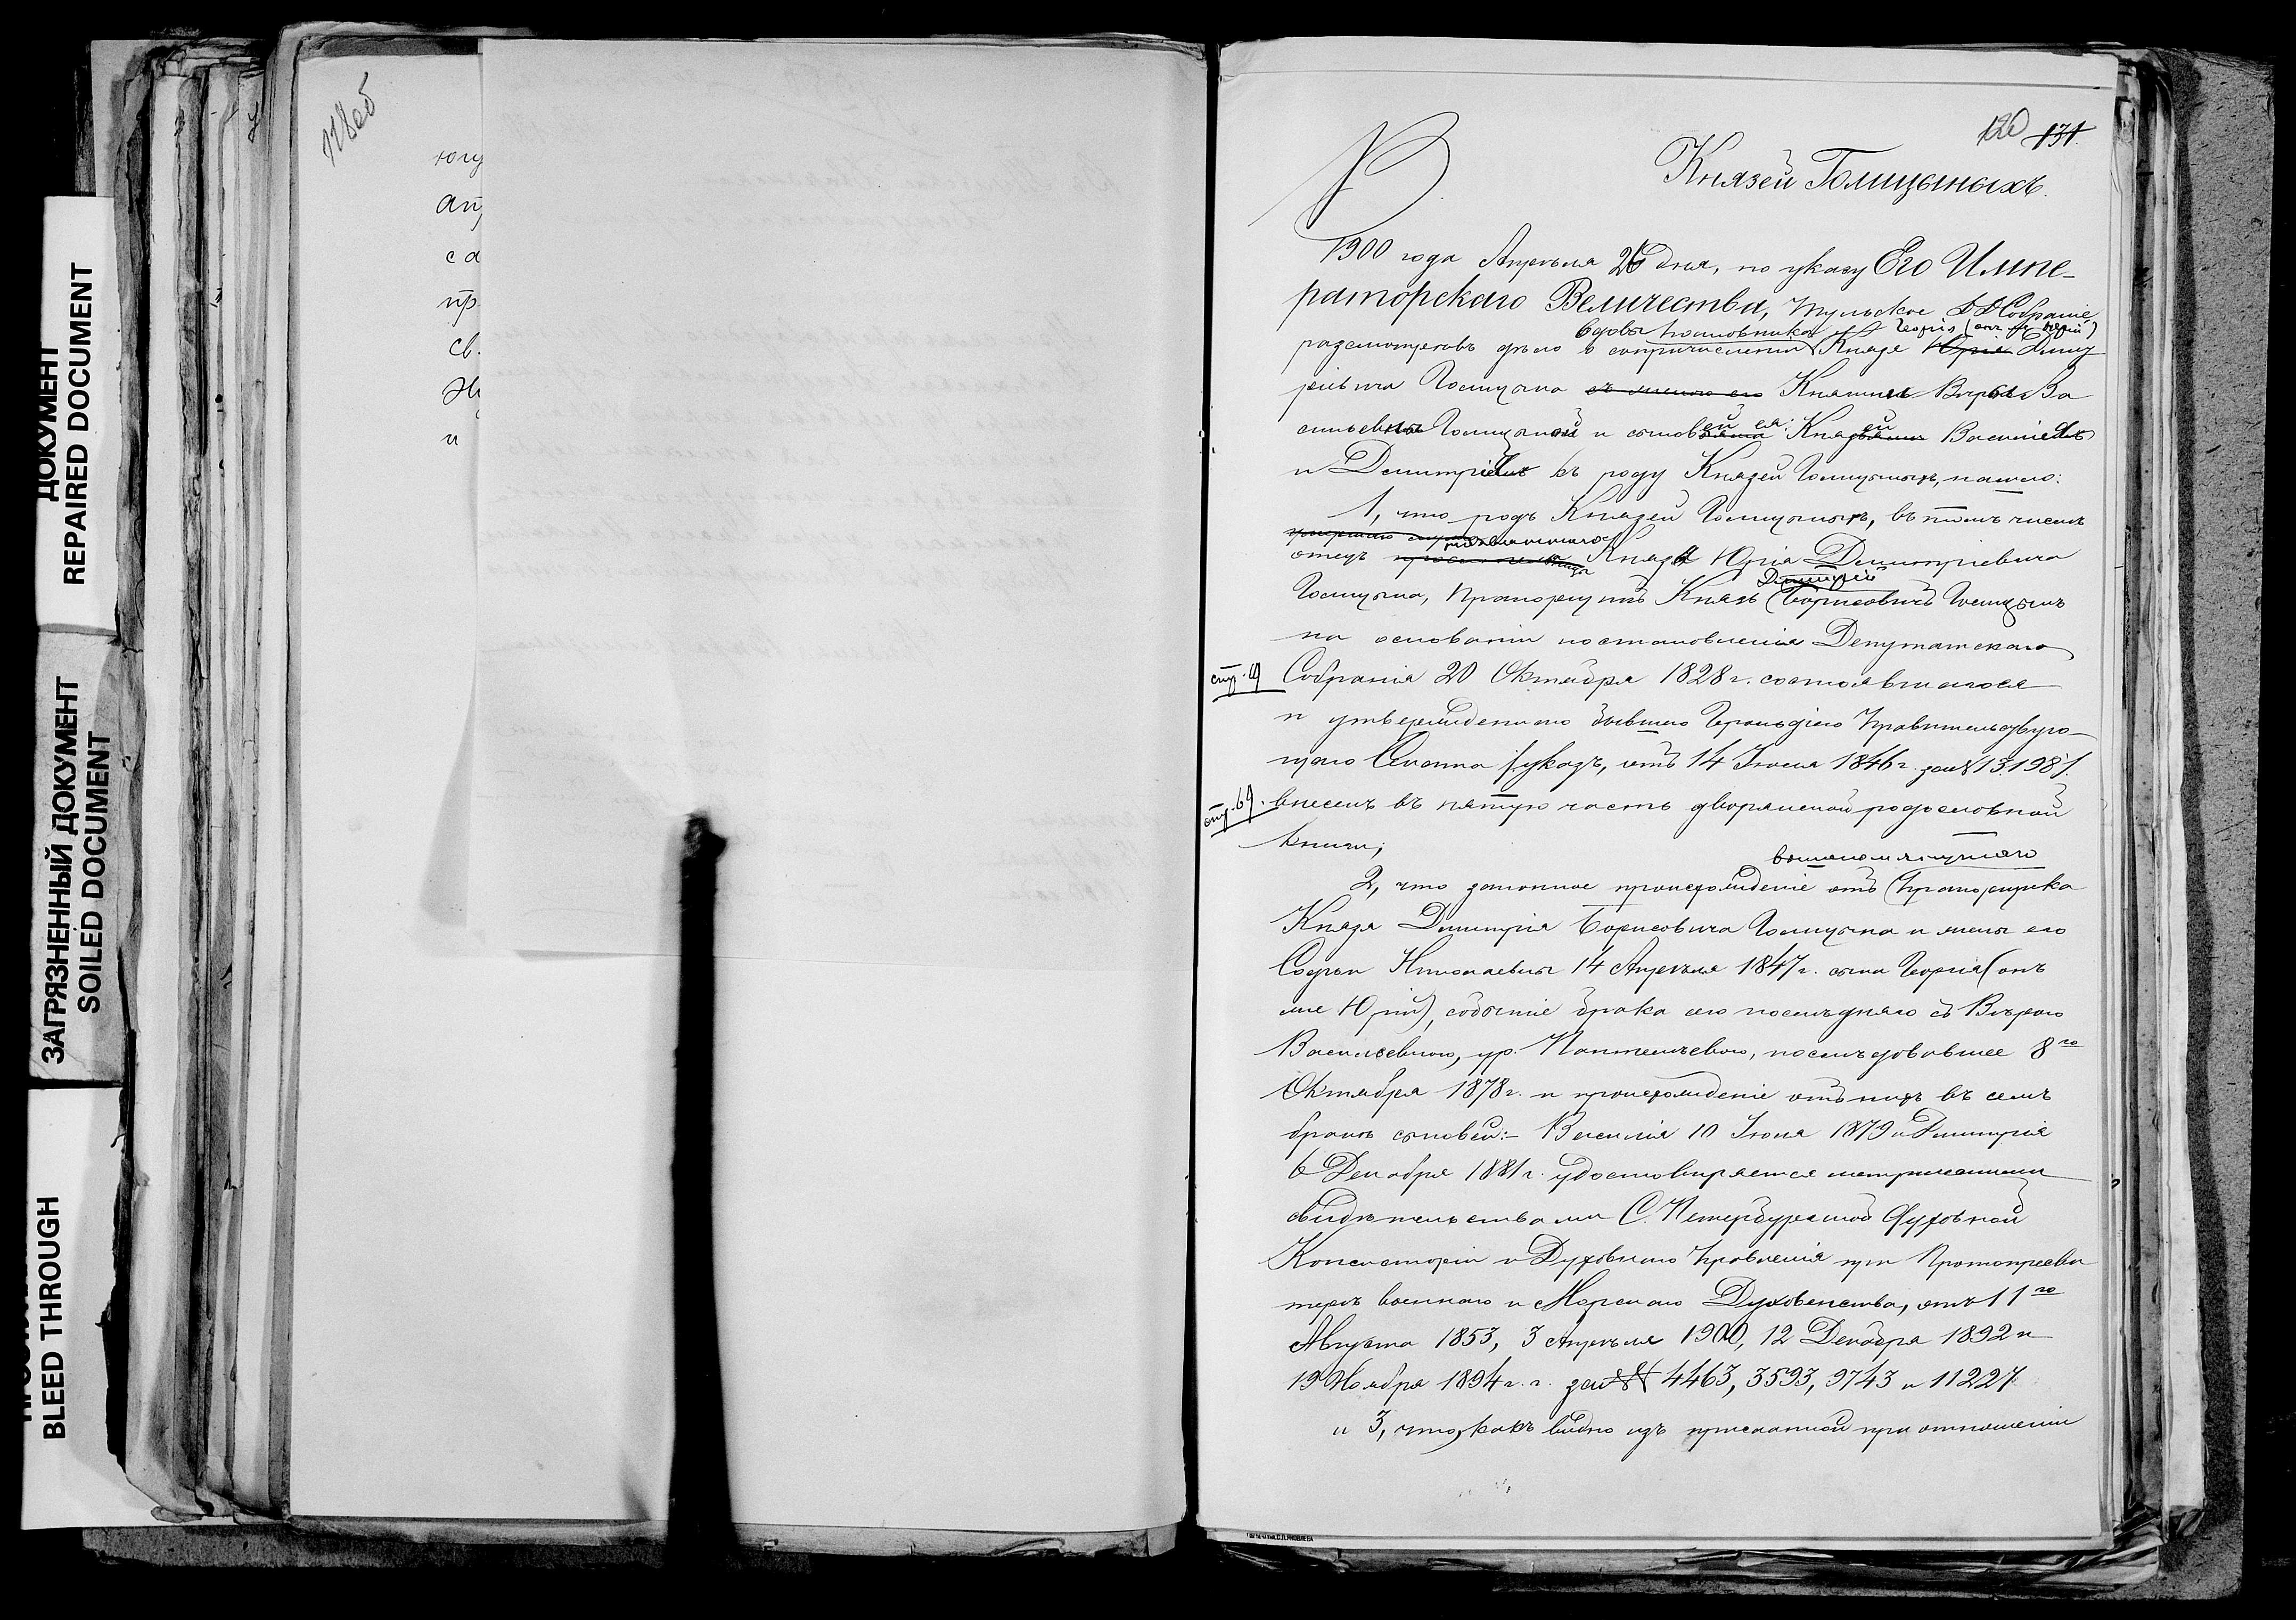 ДОКУМЕНТ
REPAIRED DOCUMENT
ЗАГРЯЗНЕННЫЙ ДОКУМЕНТ
SOILED DOCUMENT
BLEED THROUGH
118об
югу
ап
са
пр
св.
и
120 131.
Князей Голицыныхъ.
1900 года Апрѣля 26 дня, по указу Его Импе-
раторскаго Величества, Тульское Д. Д. Собраніе,
вдовы полковника Георгія (онъ же Юрій)
разсмотрѣвъ дѣло о сопричисленіи Князя Юрія Димит
ріевича Голицына съ женою его Княгини Вѣры Ва
ей ея: ей
сильевны Голицыной и сыновей Князей Василія
и Димитрія къ роду Князей Голицыныхъ, нашло:
1, что родъ Князей Голицыныхъ, въ томъ числѣ
отецъ Князя Юрія Димитріевича
Димитрій
Голицына, Прапорщикъ Князь Борисовичъ Голицынъ
на основаніи постановленія Депутатскаго
стр. 19 Собранія 20 Октября 1828 г. состоявшагося
и утвержденнаго бывшею Герольдіею Правительствую-
щаго Сената /указъ, отъ 14 Іюня 1846 г. за № 13198/.
стр. 69. внесенъ въ пятую часть дворянской родословной
книги;
вышепомянутаго
2, что законное происхожденіе отъ Прапорщика
Князя Димитрія Борисовича Голицына и жены его
Софьи Николаевны 14 Апрѣля 1847 г. сына Георгія (онъ
же Юрій), событіе брака сего послѣдняго съ Вѣрою
Васильевною, ур. Пантелѣевою, послѣдовавшее 8го
Октября 1878 г. и происхожденіе отъ нихъ въ семъ
бракѣ сыновей:- Василія 10 Іюня 1879 и Димитрія
6 Декабря 1881 г. удостовѣряется метрическими
свидѣтельствами С. Петербургской Духовной
Консисторіи и Духовнаго Правленія при Протопресви
терѣ военнаго и Морскаго Духовенства, отъ 11го
Августа 1853, 3 Апрѣля 1900, 12 Декабря 1892 и
19 Ноября 1894 г. г. за №№ 4463, 3593, 9743 и 11227
и 3, что, какъ видно изъ присланной при отношеніи